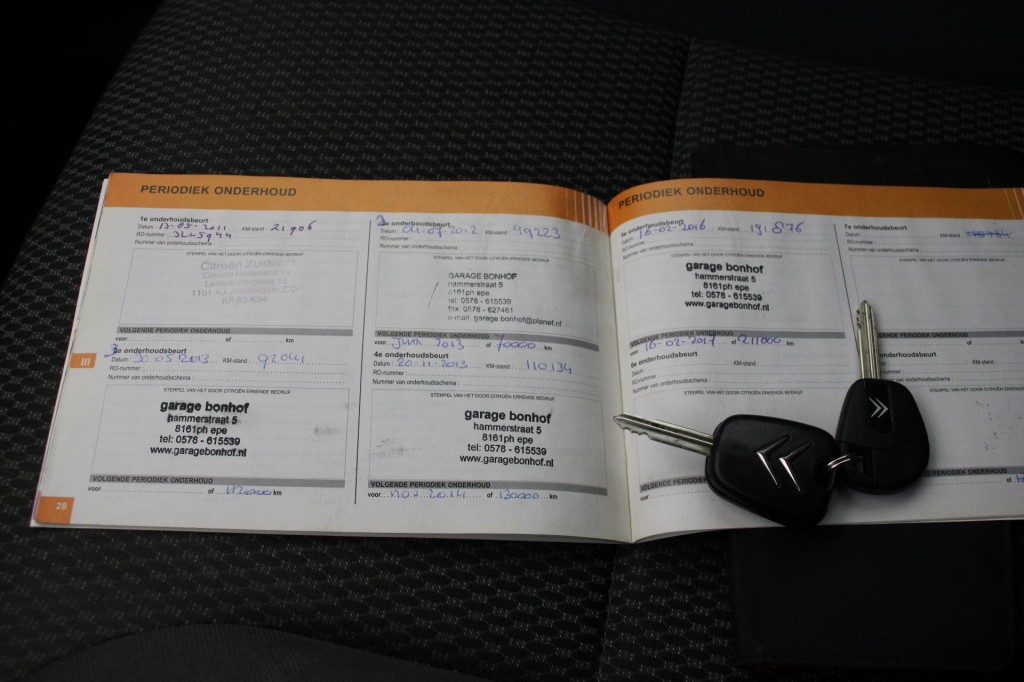 PERIODIEK ONDERHOUD
1e onderhoudsbeurt
Datum : 13-05-2011 KM-stand : 21906
RO-nummer : 3245944
Nummer van onderhoudsschema :
STEMPEL VAN HET DOOR CITROËN ERKENDE BEDRIJF
Citroën
1101 AJ Amsterdam Z.O.
VOLGENDE PERIODIEK ONDERHOUD
voor of km
2e onderhoudsbeurt
Datum : 04-07-2012 KM-stand : 49223
RO-nummer :
Nummer van onderhoudsschema :
STEMPEL VAN HET DOOR CITROËN ERKENDE BEDRIJF
GARAGE BONHOF
hammerstraat 5
8161ph epe
tel: 0578 - 615539
fax: 0578 - 627461
e-mail: garage.bonhof@planet.nl
VOLGENDE PERIODIEK ONDERHOUD
voor juni 2013 of 70000 km
3e onderhoudsbeurt
Datum : 30-05-2013 KM-stand : 92041
RO-nummer :
Nummer van onderhoudsschema :
STEMPEL VAN HET DOOR CITROËN ERKENDE BEDRIJF
garage bonhof
hammerstraat 5
8161ph epe
tel: 0578 - 615539
www.garagebonhof.nl
VOLGENDE PERIODIEK ONDERHOUD
voor of 112000 km
4e onderhoudsbeurt
Datum : 20-11-2013 KM-stand : 110134
RO-nummer :
Nummer van onderhoudsschema :
STEMPEL VAN HET DOOR CITROËN ERKENDE BEDRIJF
garage bonhof
hammerstraat 5
8161ph epe
tel: 0578 - 615539
www.garagebonhof.nl
VOLGENDE PERIODIEK ONDERHOUD
voor nov 2014 of 130000 km
III
28
PERIODIEK ONDERHOUD
5e onderhoudsbeurt
Datum : 16-02-2016 KM-stand : 191876
RO-nummer :
Nummer van onderhoudsschema :
STEMPEL VAN HET DOOR CITROËN ERKENDE BEDRIJF
garage bonhof
hammerstraat 5
8161ph epe
tel: 0578 - 615539
www.garagebonhof.nl
VOLGENDE PERIODIEK ONDERHOUD
voor 16-02-2017 of 211000 km
6e onderhoudsbeurt
Datum :
RO-nummer :
Nummer van onderhoudsschema :
STEMPEL VAN HET DOOR CITROËN ERKENDE BEDRIJF
VOLGENDE PERIODIEK
voor
7e onderhoudsbeurt
Datum : KM-stand :
RO-nummer :
Nummer van onderhoudsschema :
STEMPEL VAN HET DOOR CITROËN ERKENDE
VOLGENDE PERIODIEK ONDERHOUD